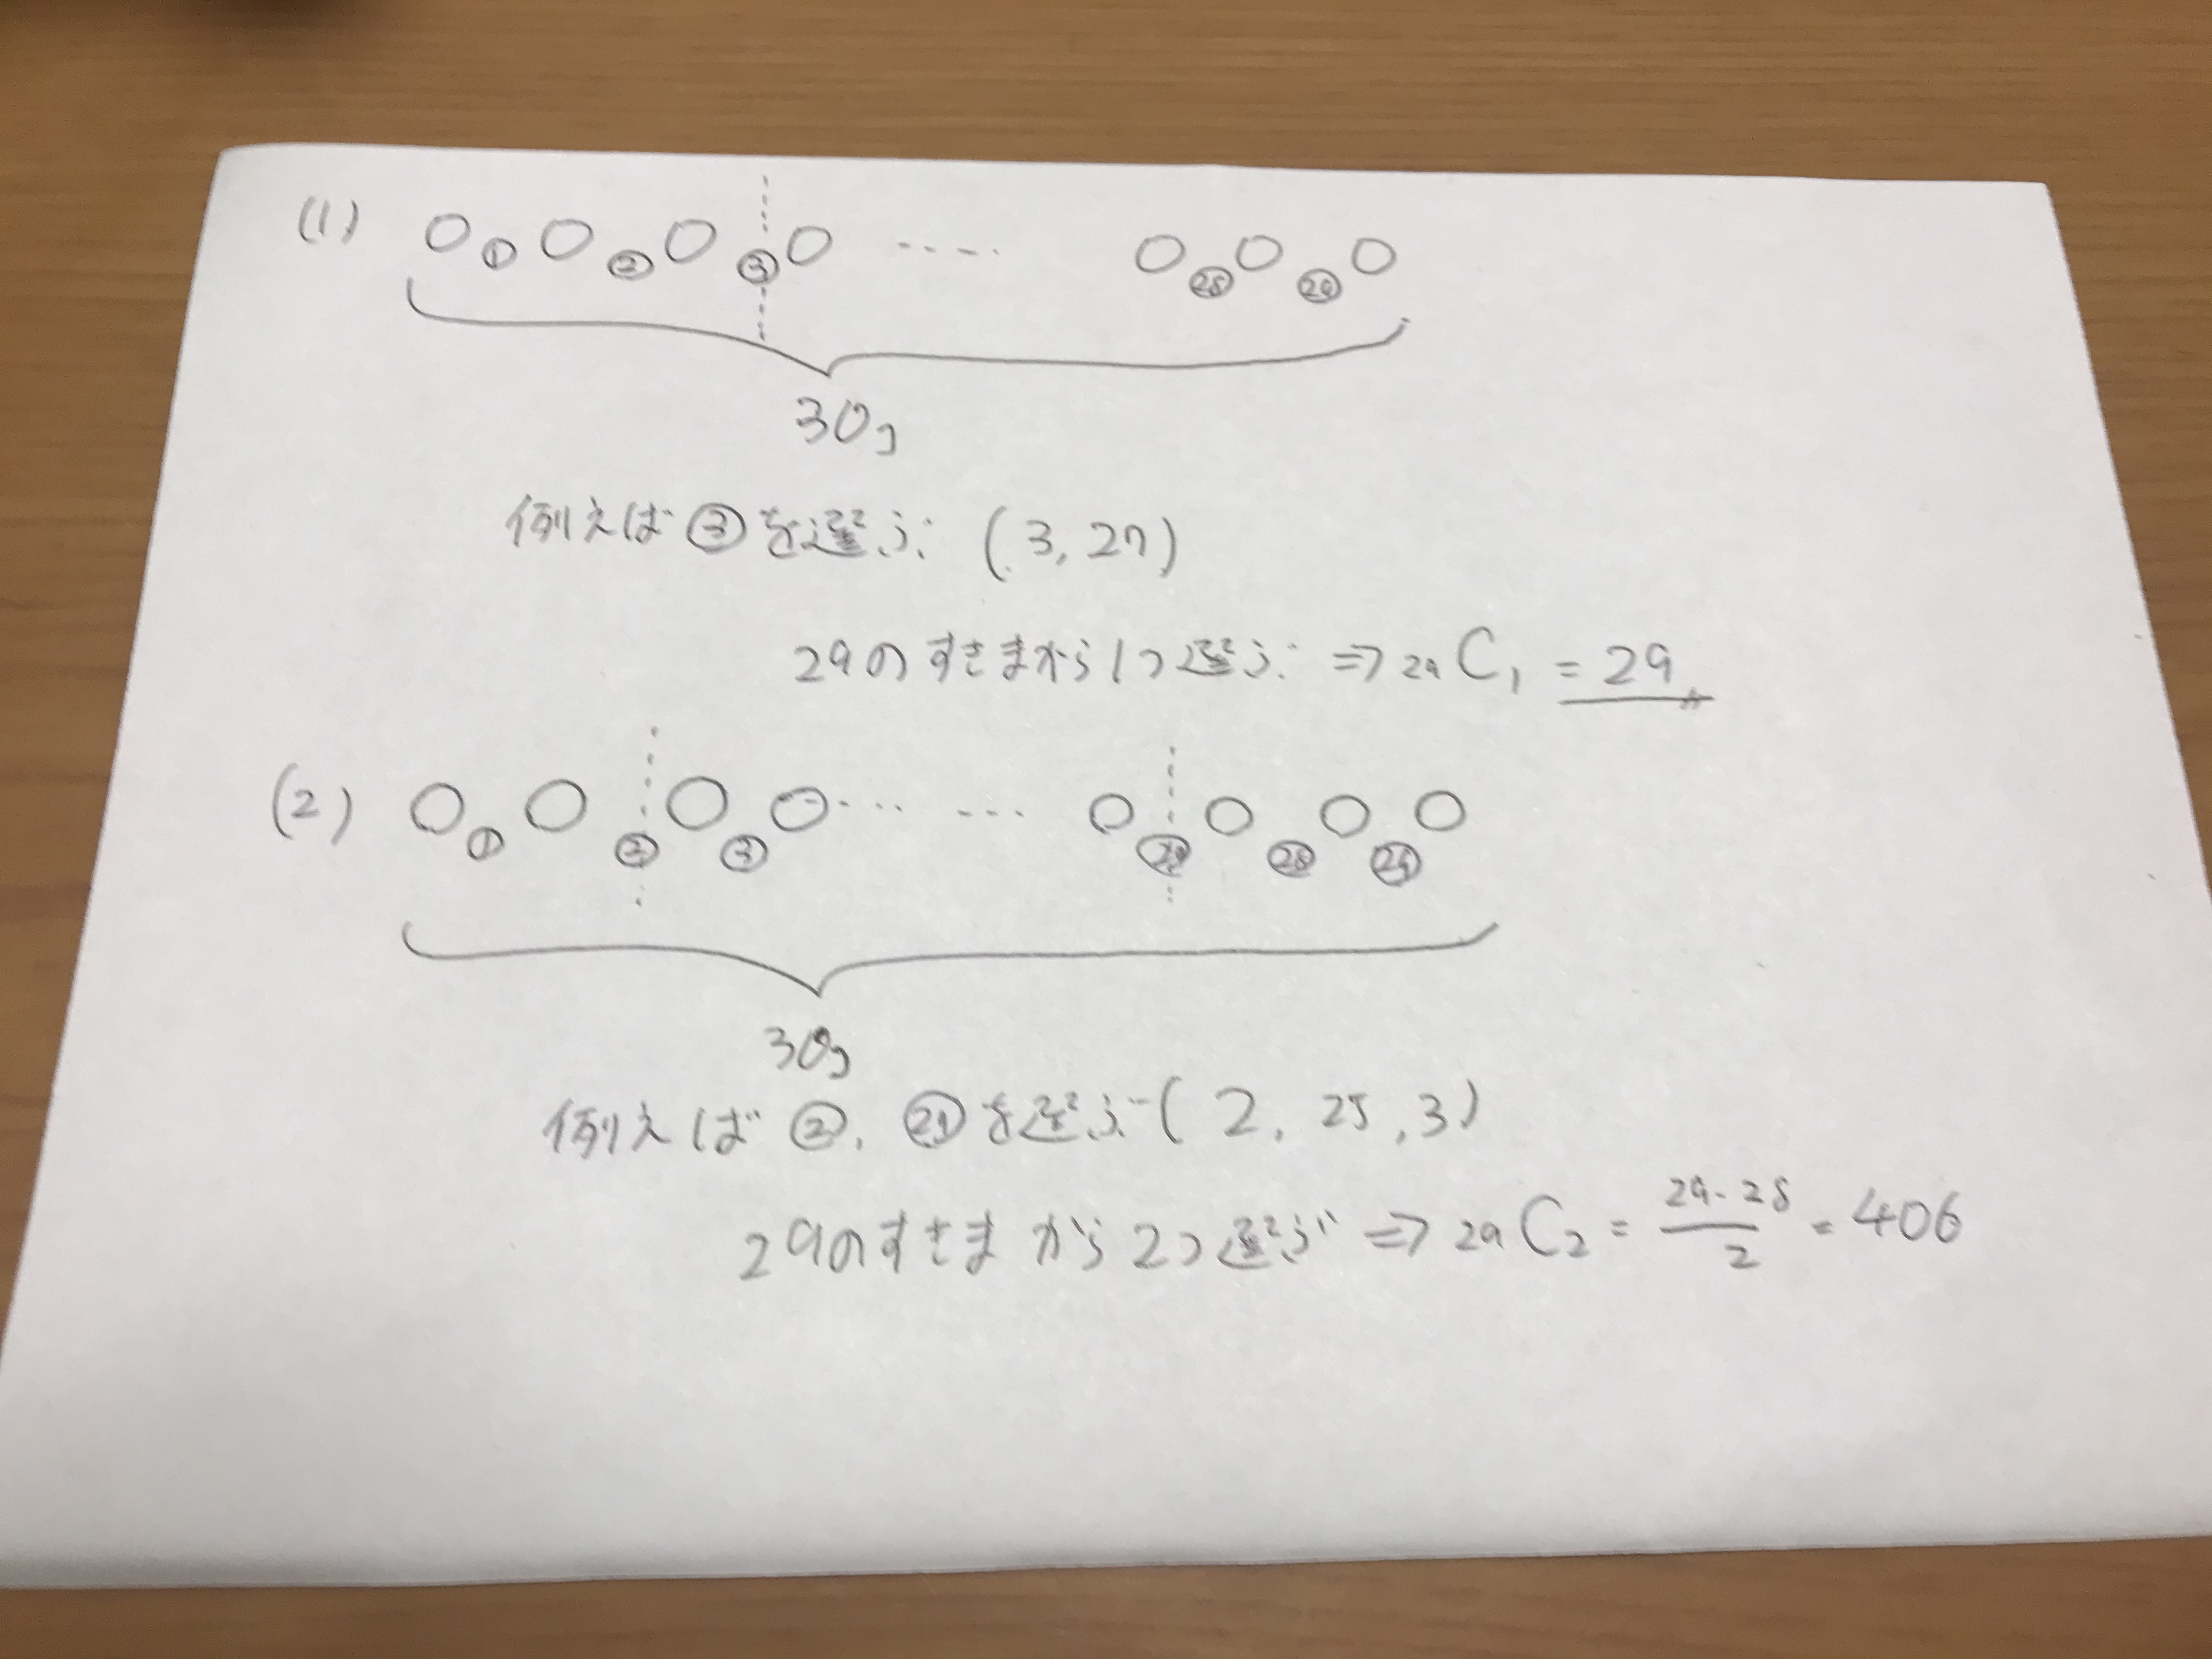 (1) ○ ① ○ ② ○ ③ ○ ---- ○ ㉘ ○ ㉙ ○
30コ
例えば ③ を選ぶ (3, 27)
29のすきまから1つ選ぶ ⇒ ₂₉C₁ = 29
(2) ○ ① ○ ② ○ ③ ○ --- --- ○ ㉗ ○ ㉘ ○ ㉙ ○
30コ
例えば ②, ㉗ を選ぶ (2, 25, 3)
29のすきまから2つ選ぶ ⇒ ₂₉C₂ = 29・28/2 = 406